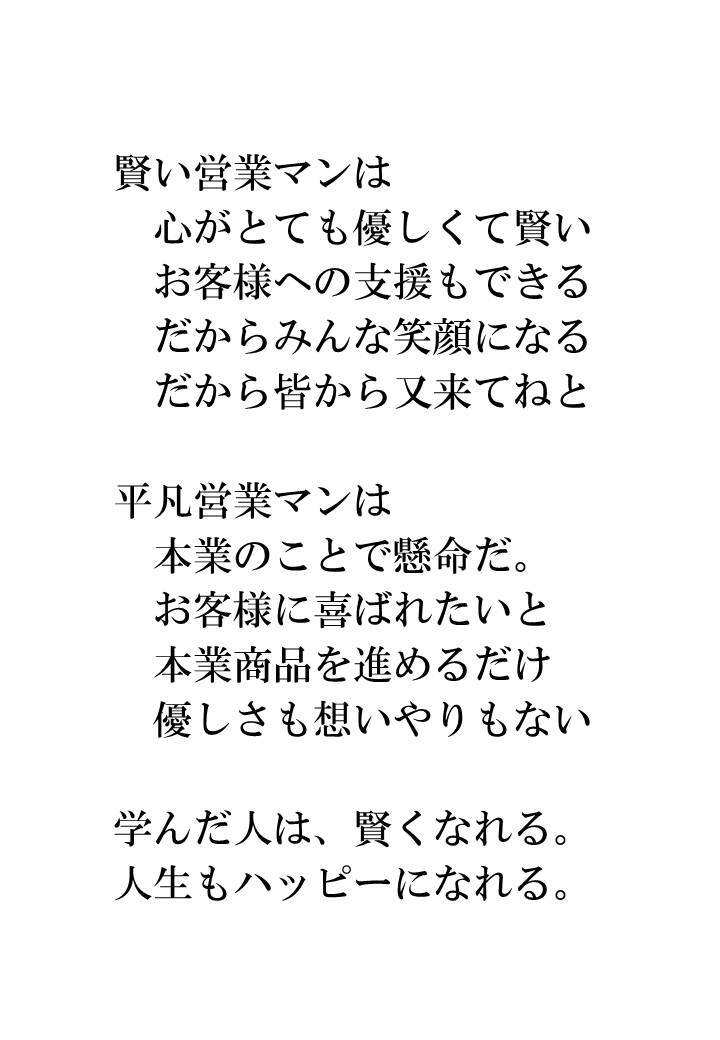 賢い営業マンは
心がとても優しくて賢い
お客様への支援もできる
だからみんな笑顔になる
だから皆から又来てねと
平凡営業マンは
本業のことで懸命だ。
お客様に喜ばれたいと
本業商品を進めるだけ
優しさも想いやりもない
学んだ人は、賢くなれる。
人生もハッピーになれる。